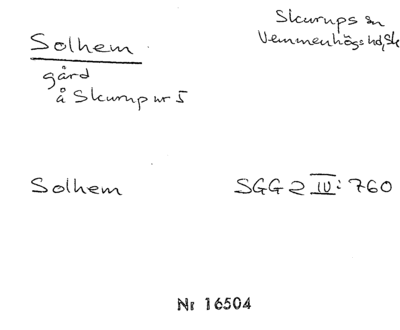 Solhem
gård
å Skurup nr 5
Skurups sn
Vemmenhögs hd, Sk
Solhem
SGG 2 IV: 760
Nr 16504